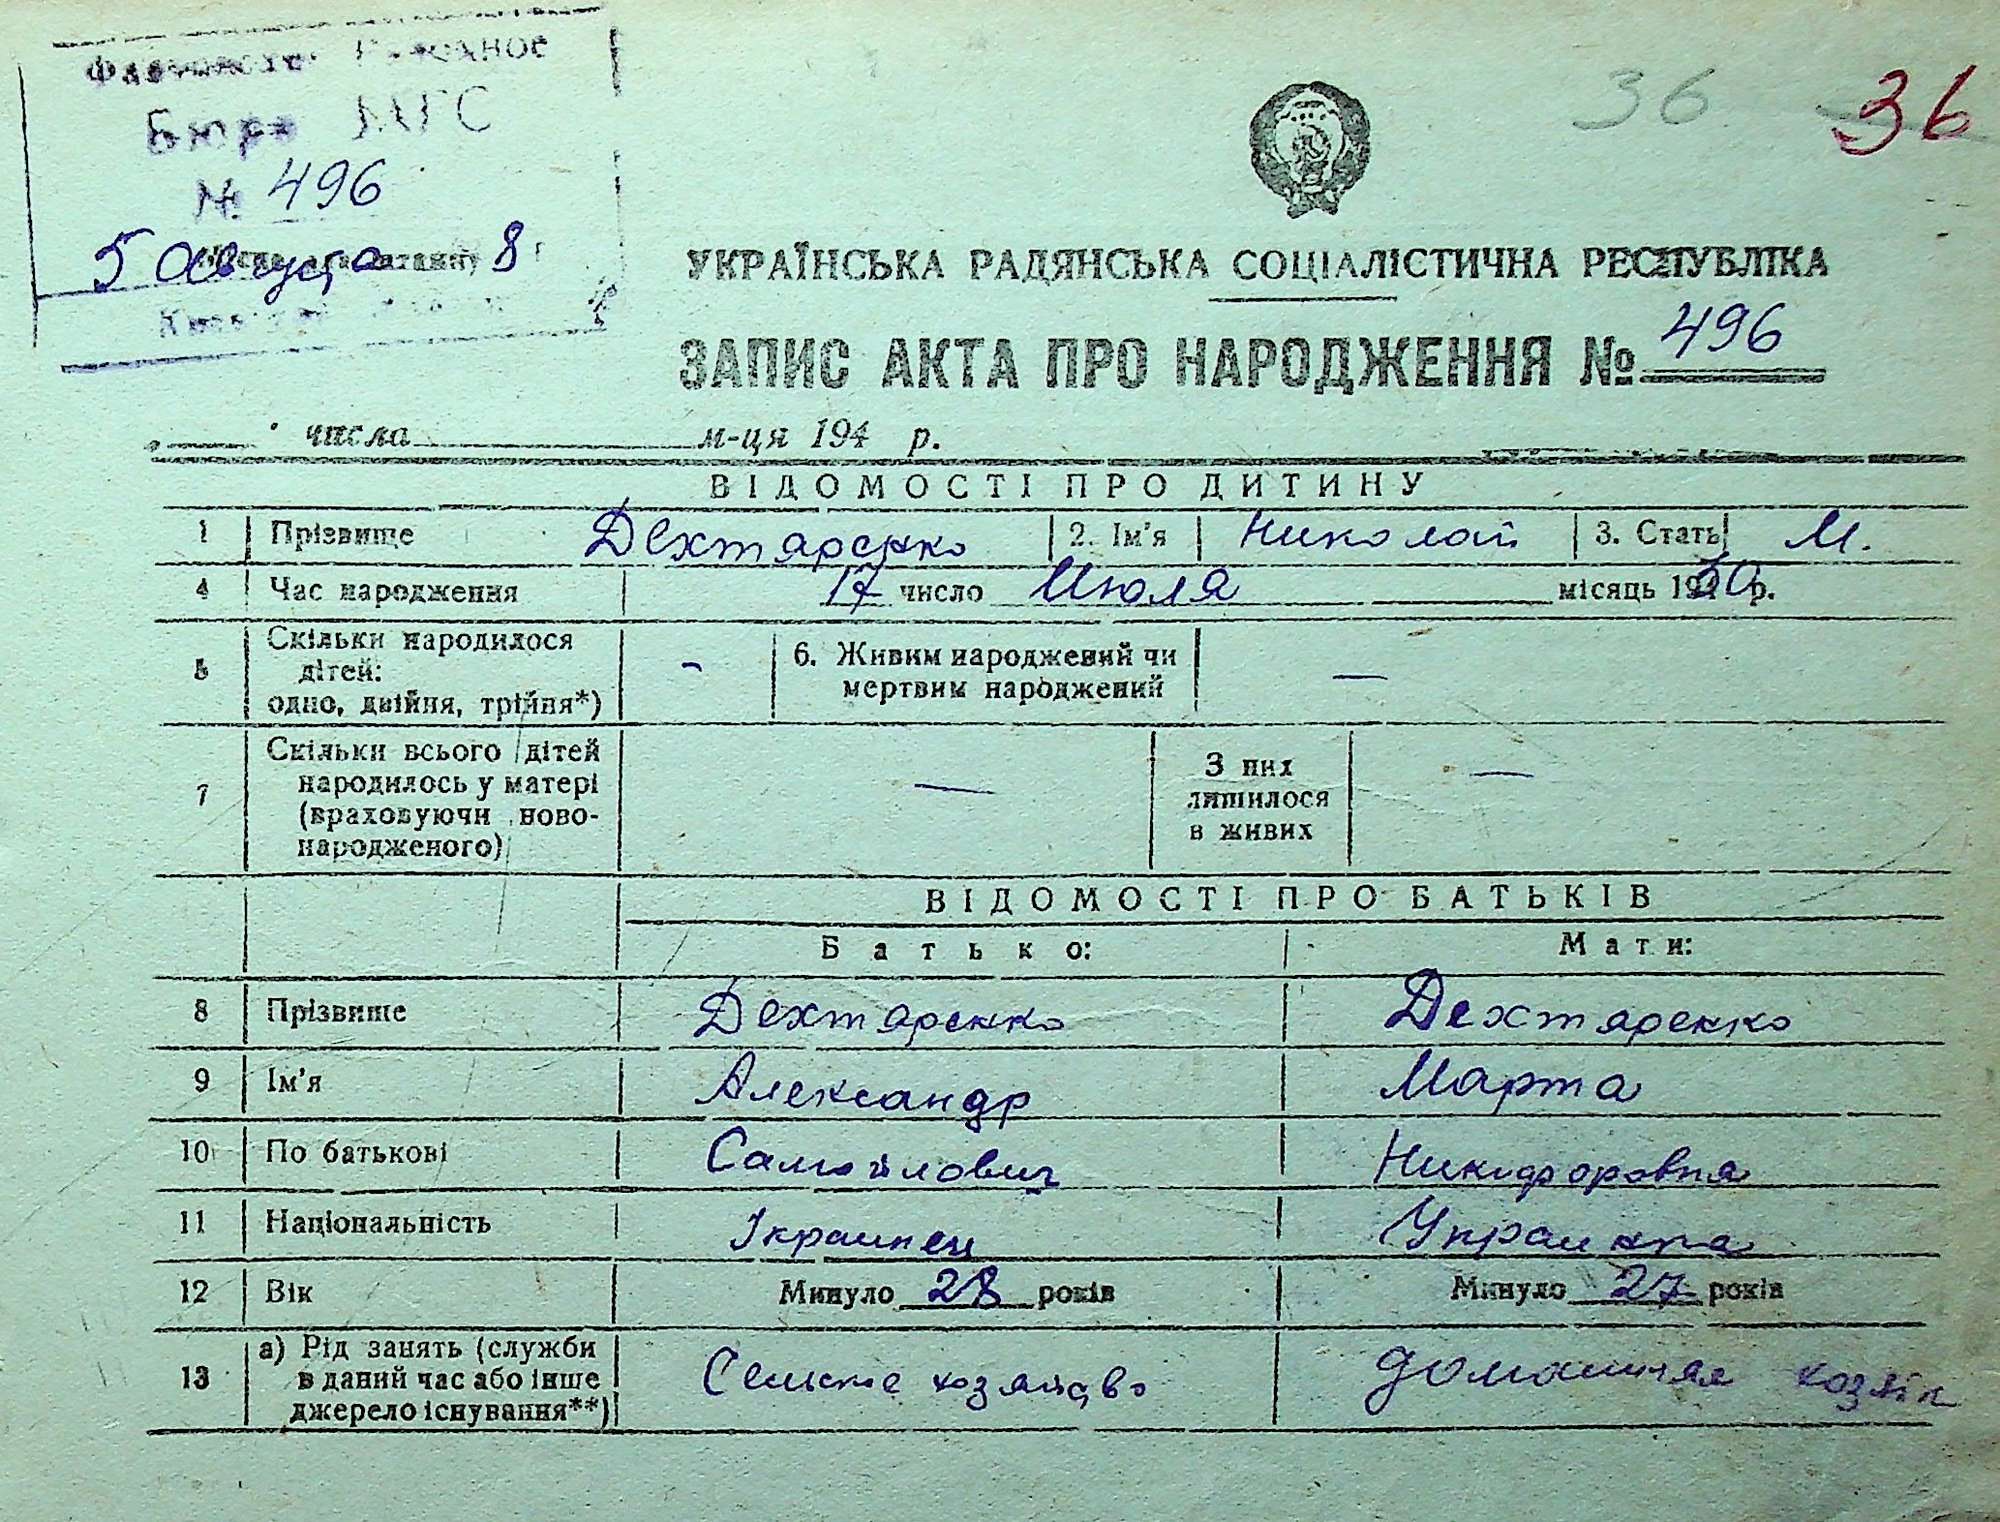 Бюро МГС
№ 496
5 августа 8 г
36 36
УКРАЇНСЬКА РАДЯНСЬКА СОЦІАЛІСТИЧНА РЕСПУБЛІКА
ЗАПИС АКТА ПРО НАРОДЖЕННЯ № 496
числа м-ця 194 р.
ВІДОМОСТІ ПРО ДИТИНУ
1 Прізвище Дехтяренко 2. Ім'я Николай 3. Стать М.
4 Час народження 17 число Июля місяць 1930 р.
5 Скільки народилося
дітей:
одно, двійня, трійня*) - 6. Живим народжений чи
мертвим народжений —
7 Скільки всього дітей
народилось у матері
(враховуючи ново-
народженого) — З них
лишилося
в живих —
ВІДОМОСТІ ПРО БАТЬКІВ
Батько: Мати:
8 Прізвище Дехтяренко Дехтяренко
9 Ім'я Александр Марта
10 По батькові Самойлович Никифоровна
11 Національність Украинец Украинка
12 Вік Минуло 28 років Минуло 27 років
13 а) Рід занять (служби
в даний час або інше
джерело існування**) Сельское домашняя хозяйк